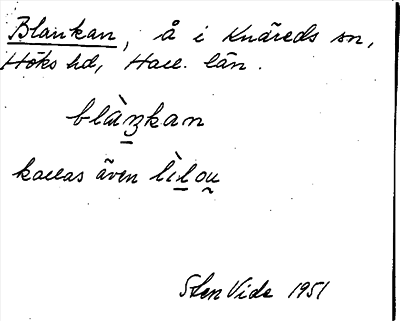 Blankan, å i Knäreds sn,
Höks hd, Hall. län.
blàŋkan
kallas även lìlou
Sten Vide 1951